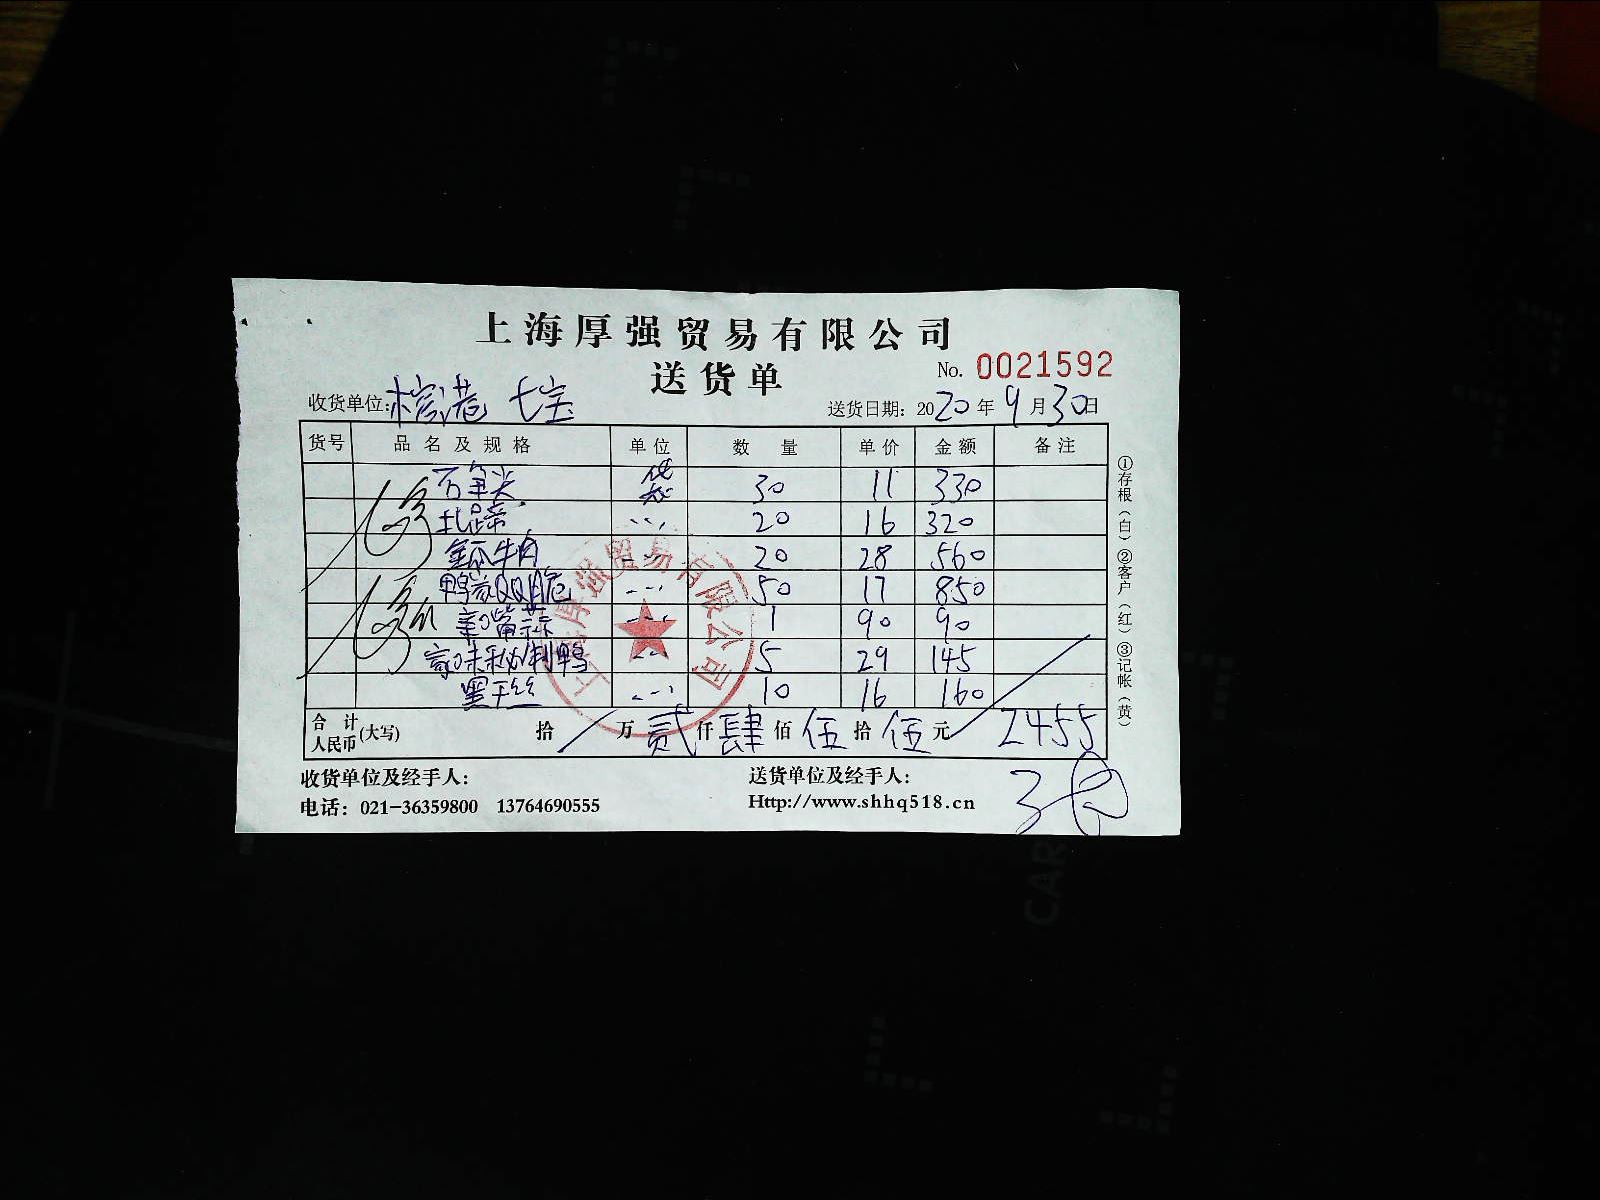 上海厚强贸易有限公司
送货单 No. 0021592
收货单位: 港 七宝 送货日期: 2020年9月30日
货号 品名及规格 单位 数量 单价 金额 备注
万年尖 袋 30 11 330
北昌蒂 〃 20 16 320
金瓜牛肉 〃 20 28 560
鸭 QQ脆 50 17 850
1 90 90
味秘制鸭 5 29 145
黑干丝 10 16 160
合计人民币(大写) 拾 / 万 贰 仟 肆 佰 伍 拾 伍 元 2455
收货单位及经手人: 送货单位及经手人:
电话: 021-36359800 13764690555 Http://www.shhq518.cn
①存根(白)②客户(红)③记帐(黄)
上海厚强贸易有限公司